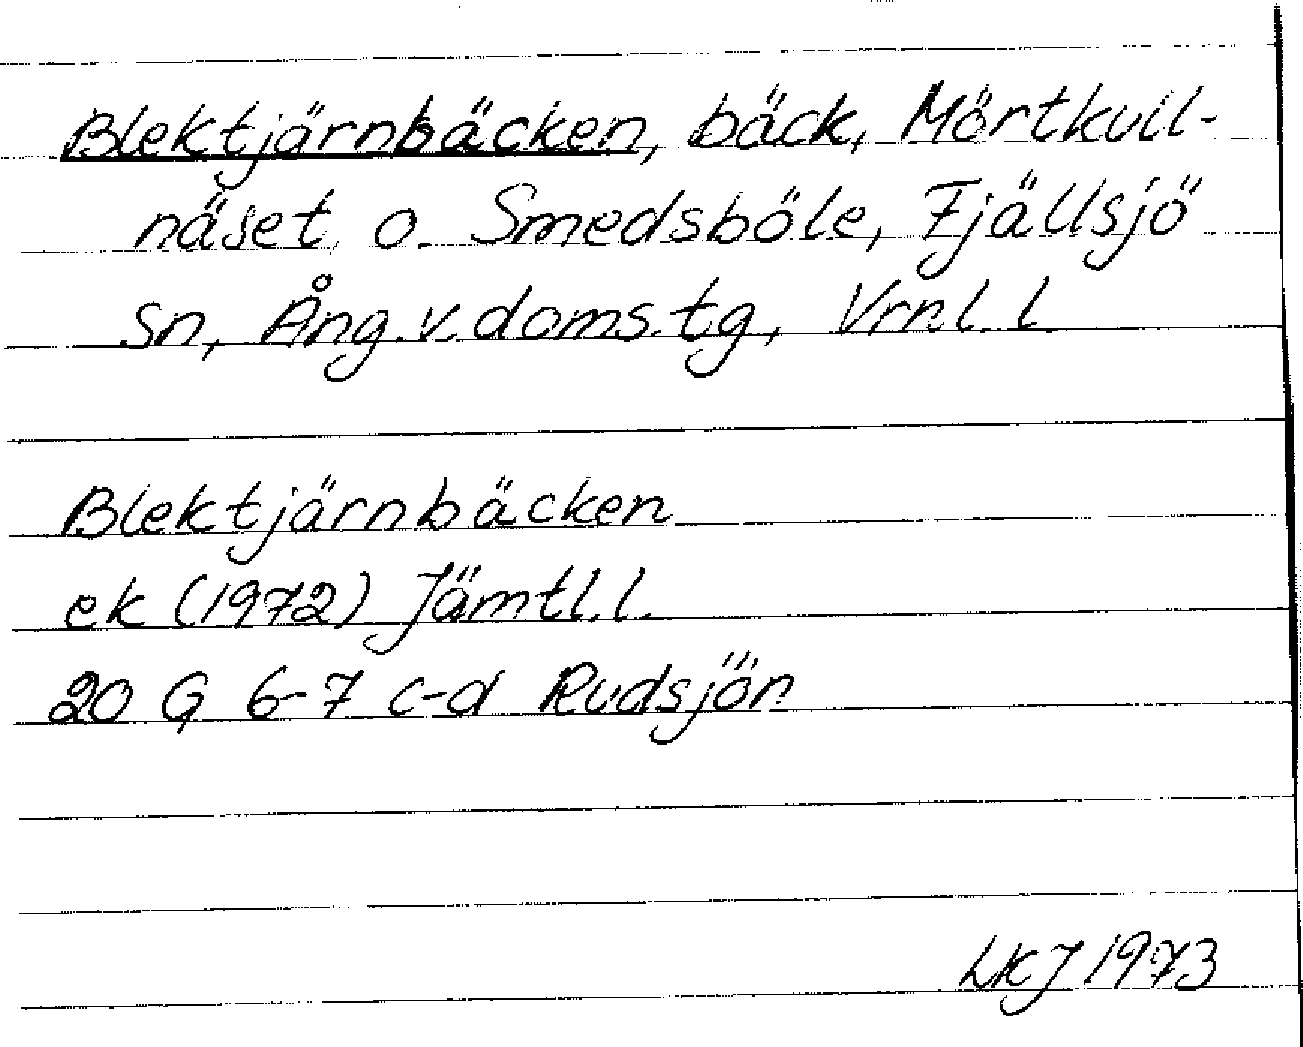 Blektjärnbäcken, bäck, Mörtkull-
näset o. Smedsböle, Fjällsjö
sn, Ång.v.doms.tg, Vrnl.l.
Blektjärnbäcken
ek (1972) Jämtl.l.
20 G 6-7 c-d Rudsjön
LKJ 1973